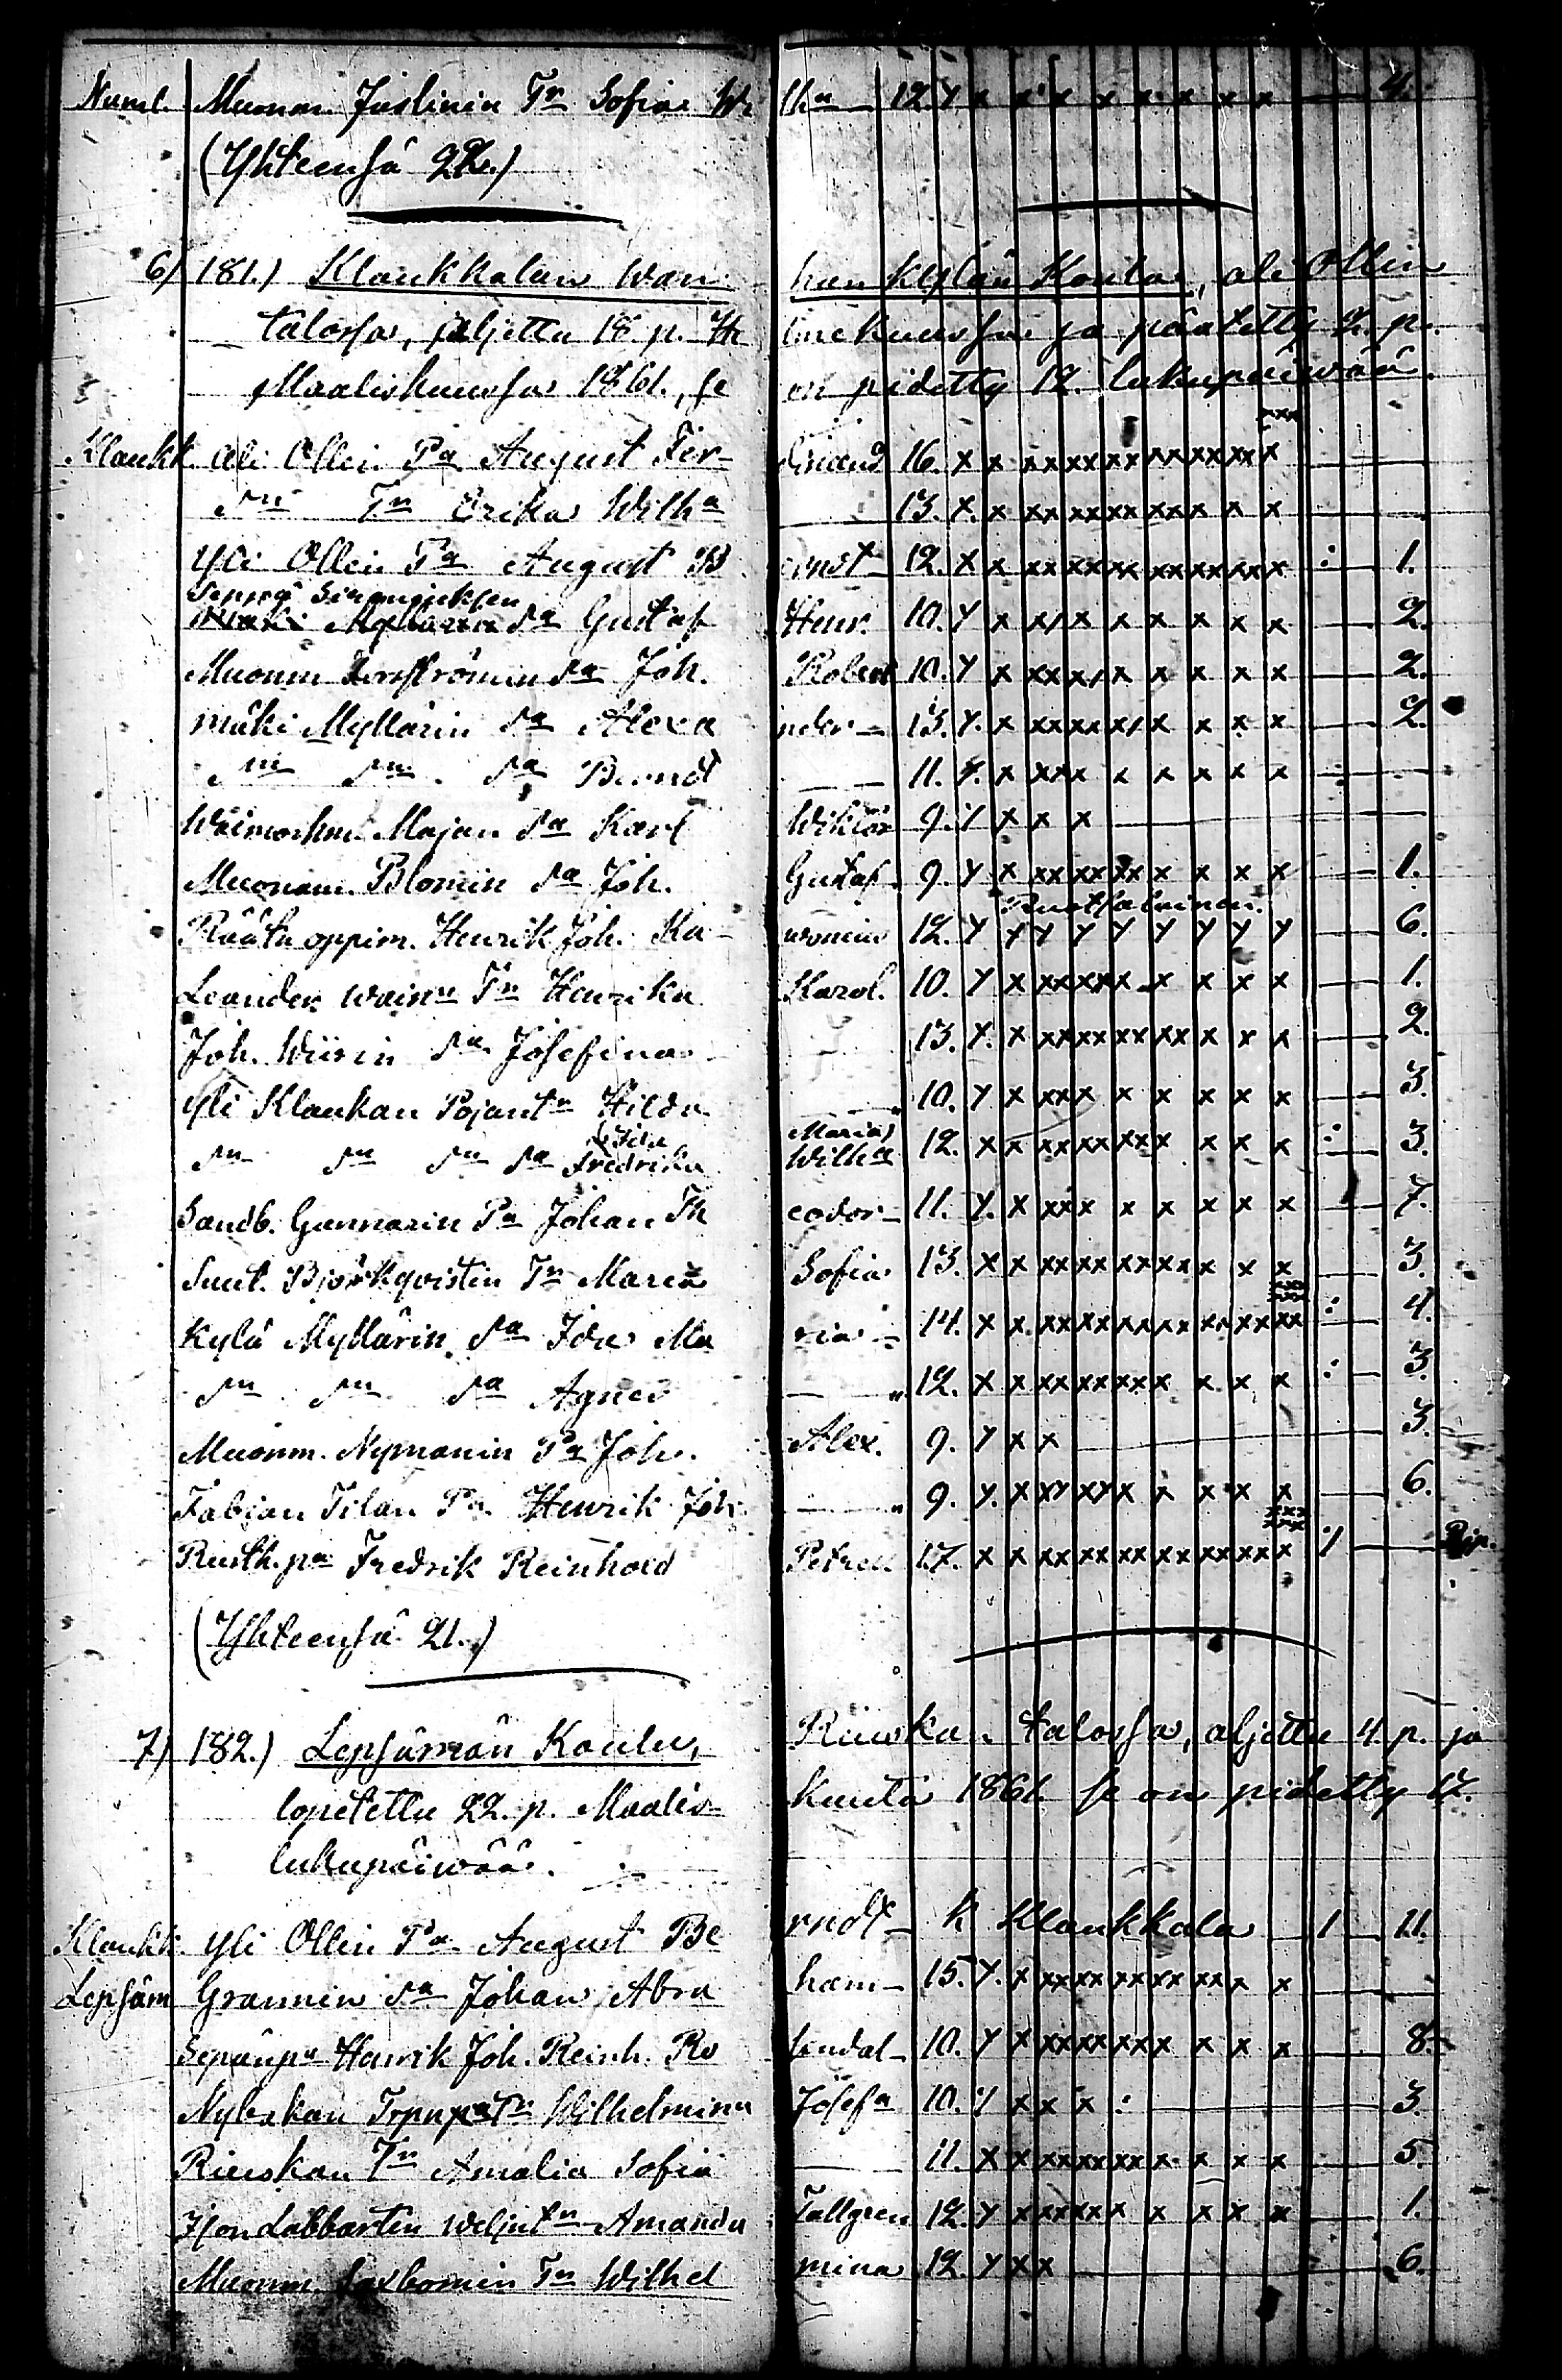 Numl. Muonm. Juslinin Tr Sofia Wilha 12. y x x x x x x x x 4.
(Yhteensä 22.)
6) 181.) Klaukkalan Wanhan kylän Koulu, ali Ollin
talossa, aljettu 18. p. Helmekuussa ja päätetty 2. p.
Maaliskuussa 1861, se on pidetty 12. lukupäiwää.
Klaukk. Ali Ollin Pa August Ferdinand 16. x x xx xx xx xx xx xx x
Tr Erika Wilha 13. x. x xx xx xx xx x x. x x
Yli Ollin Pa August Bernst 12. x x xx xx xx xx xx xx x : 1.
Gustaf Henr. 10. y x x x x x x x x 2.
Muonm. Joh. Robert 10. y x xx x x x x x x 2.
Mäki Myllärin sa Alexander 13. y. x xx xx x x x x x 2.
sn sn sa Berndt 11. x. x xx x x x x x x
Majan sa Karl Wiktor 9. y x x x
Muonam. Blomin sa Joh. Gustaf 9. y x xx xx xx x x x x 1.
Räätn oppim. Henrik Joh. Ka 12. y y y y y y y y y 6.
Leander Wain Tr Henrika Karol. 10. y x xx xx x x x x x 1.
Joh. Wiirin sa Josefina 13. x. x xx xx xx xx x x x 2.
Yli Klaukan Pojantr Hilda 10. y x xx x x x x x x 3.
sn sn sn sa (Ida Maria) Fredrika Wilha 12. x x xx xx xx x x x x : 3.
Sandb. Gunnarin Pa Johan Theodor 11. y. x xx x x x x x x 7.
Suut. Björkqvistin Tr Maria Sofia 13. x x xx xx xx xx x x x 3.
Kylä Myllärin sa Ida Maria 14. x x. xx xx xx xx xx xx xx : 4.
sn sn sa Agnes 12. x x xx xx xx x x. x x : 3.
Muonm. Nymanin Pa Joh. Alex. 9. y x x 3.
Fabian Tilan Pa Henrik Joh. 9. y. x xy xy x x x x x 6.
Rusth. pa Fredrik Reinhold Petrell 17. x x xx xx xx xx xx xx x
(Yhteensä 21.)
7) 182.) Lepsämän Koulu, Riuskan talossa, aljettu 4. p. ja
lopetettu 22. p. Maaliskuuta 1861. se on pidetty 17.
lukupäiwää.
Klaukk. Yli Ollin Pa August Berndt k Klaukkala 1 11.
Lepsäm Grannin sa Johan Abraham 15. y. x xx xx xx xx xx x x
Sepänpa Henrik Joh. Reinh. Rosendal 10. y x xx xx xx x x x x 8.
Wilhelmina Josefa 10. y x x x : 3.
Riuskan Tr Amalia Sofia 11. x x xx xx xx x x x x 5.
Amanda Tallgren 12. y x xx xx x x x x x 1.
Muonm. Tr Wilhelmina 12. y x x 6.